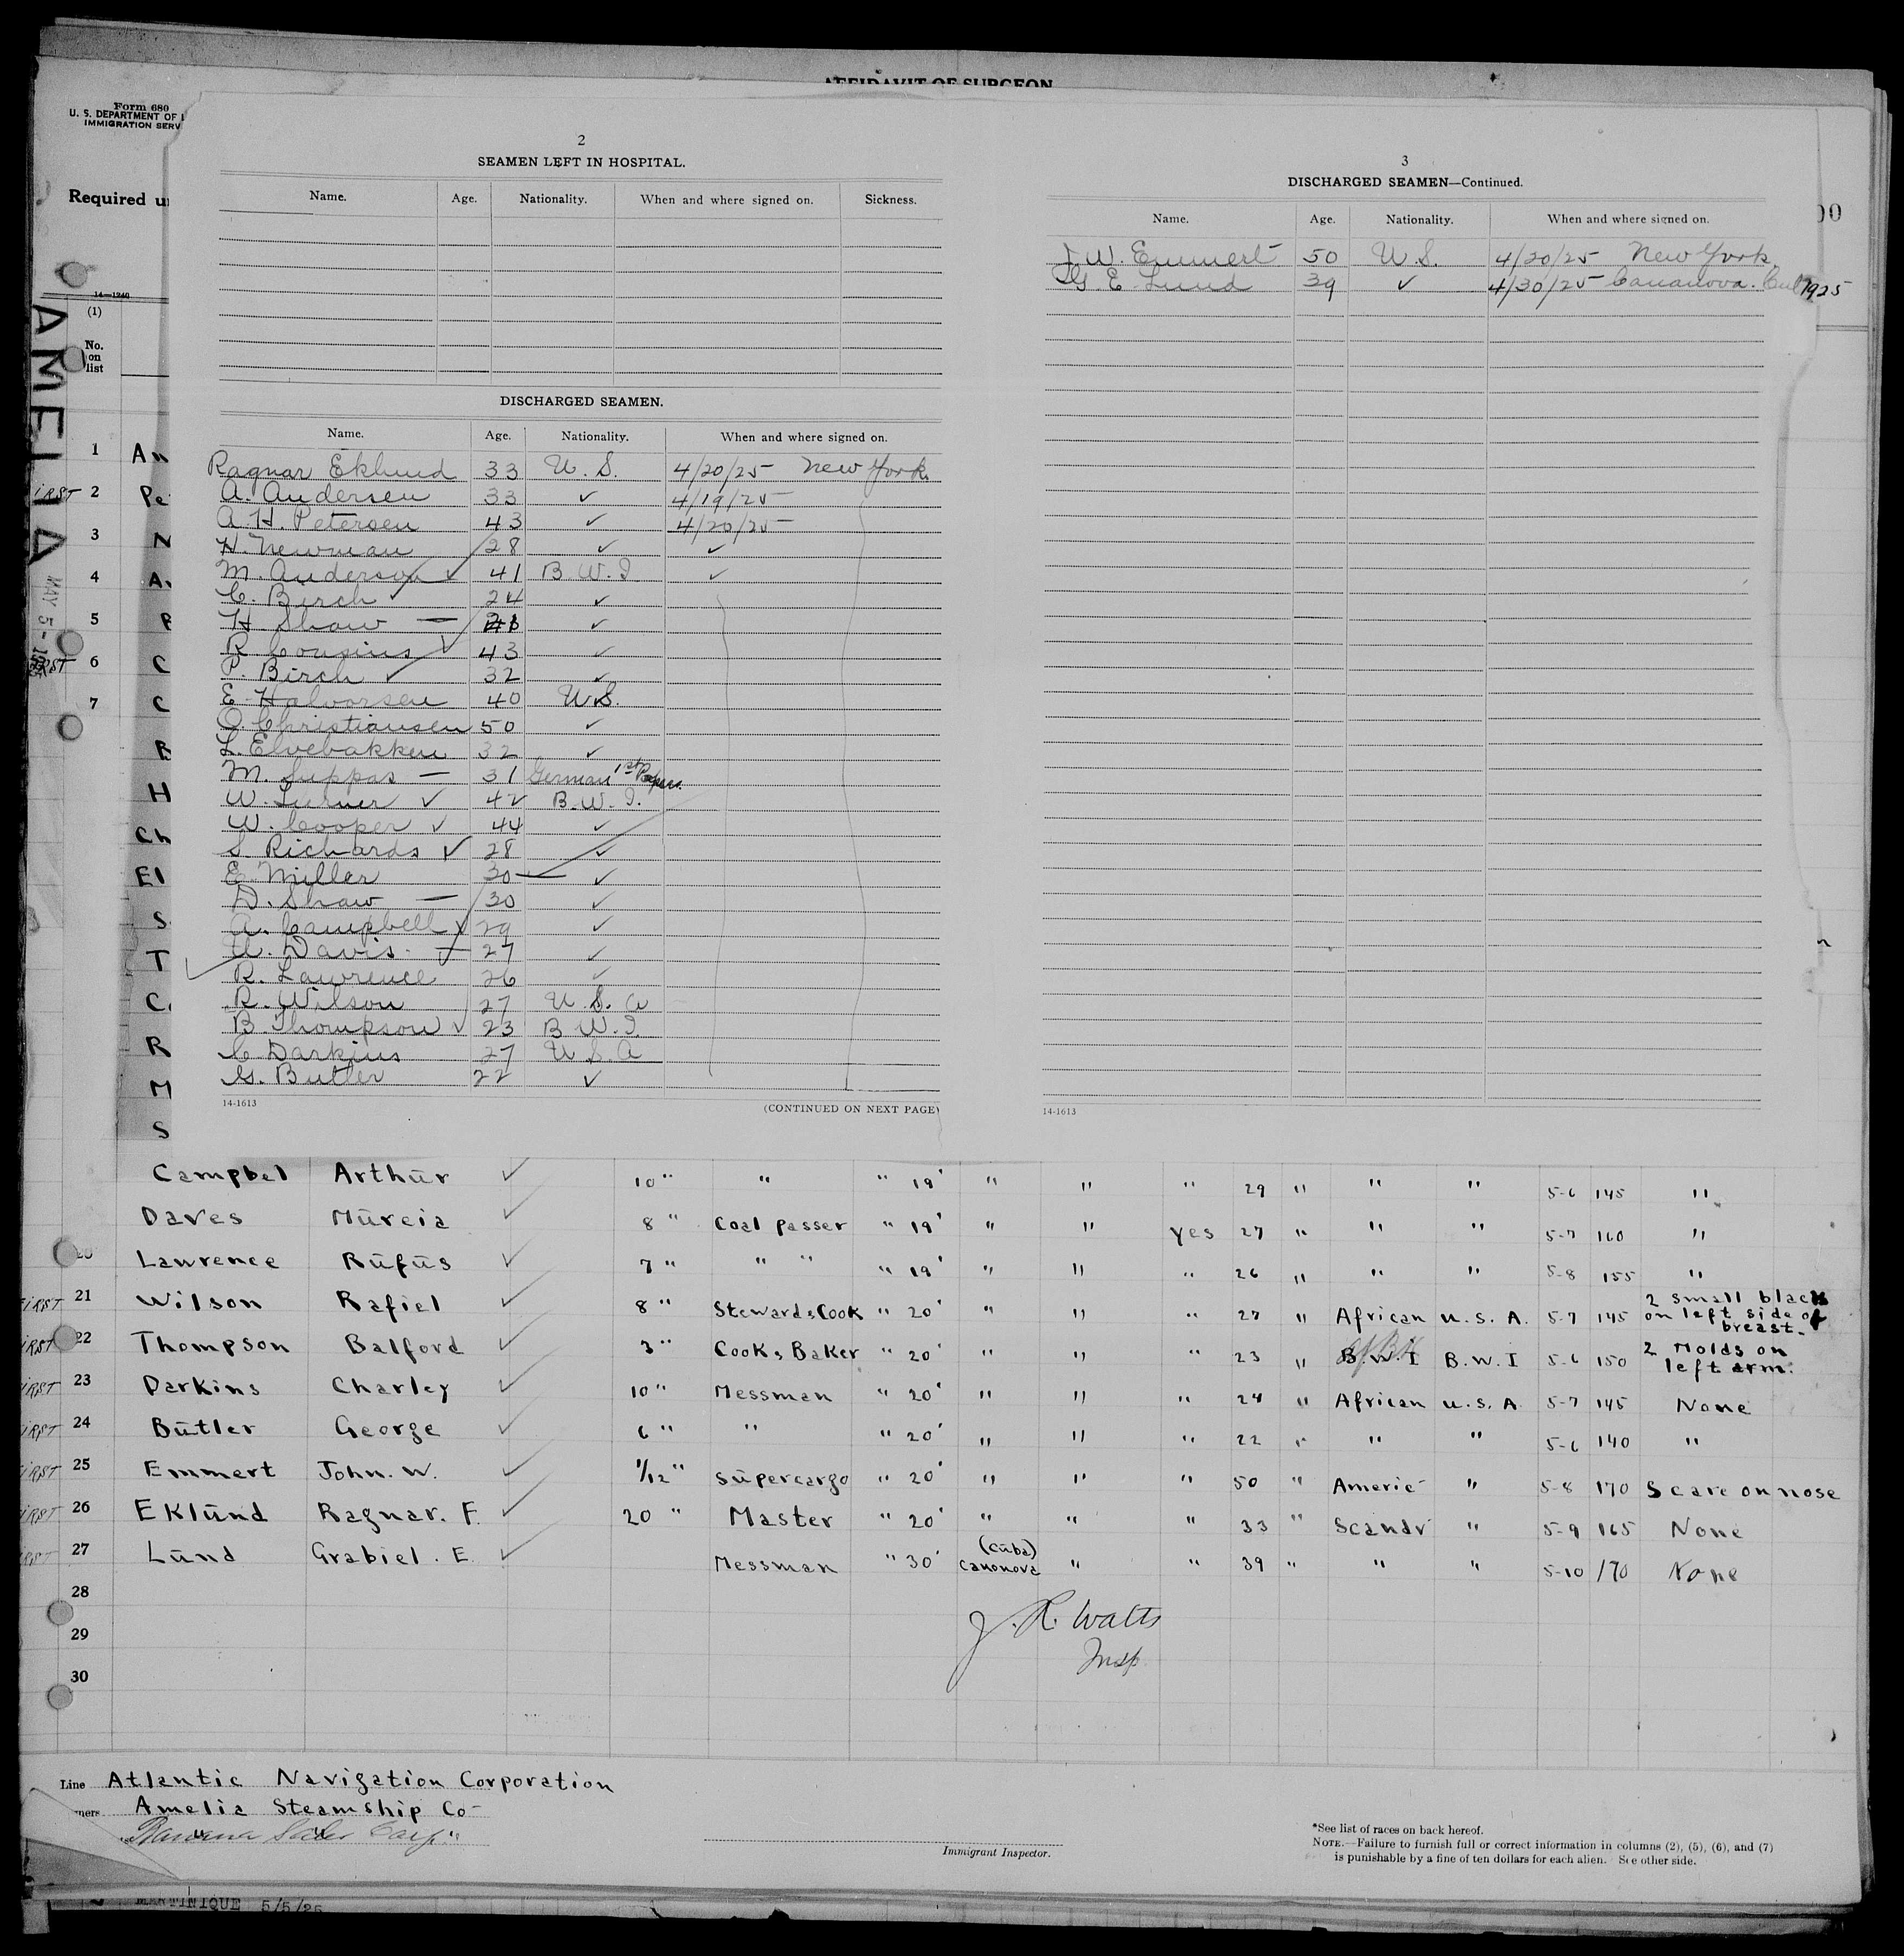 AFFIDAVIT OF SURGEON
Form 680
U. S. DEPARTMENT OF
IMMIGRATION SERV
Required
14—1240
AMELIA
MAY 5-
(1)
No.
on
list
1 An
2 Pe
3 N
4 A
5
6 C
7 C
B
H
Ch
El
S
T
C
R
M
S
2
SEAMEN LEFT IN HOSPITAL.
Name. Age. Nationality. When and where signed on. Sickness.
DISCHARGED SEAMEN.
Name. Age. Nationality. When and where signed on.
Ragnar Eklund 33 U. S. 4/20/25 New York
A. Andersen 33 ✓ 4/19/25
A. H. Petersen 43 ✓ 4/20/25
H. Newman 28 ✓ ✓
M. Anderson ✓ 41 B. W. I ✓
C. Birch ✓ 24 ✓
H. Shaw — ✓
R. Cousins ✓ 43 ✓
P. Birch ✓ 32 ✓
E. Halvorsen 40 U.S.
O. Christiansen 50 ✓
L. Elvebakken 32 ✓
M. Suppas — 31 German 1st Papers
W. Turner ✓ 42 B. W. I.
W. Cooper ✓ 44 ✓
S. Richards ✓ 28 ✓
E. Miller 30 ✓
D. Shaw — 30 ✓
A. Campbell ✓ 29 ✓
Davis. 27 ✓
R. Lawrence 26 ✓
R. Wilson 27 U. S. A
B. Thompson ✓ 23 B. W. I
C Darkins 27 U S A
G. Butler 22 ✓
14-1613
(CONTINUED ON NEXT PAGE)
3
DISCHARGED SEAMEN—Continued.
Name. Age. Nationality. When and where signed on.
J. W. Emmert 50 U. S. 4/20/25 New York
G. E. Lund 39 ✓ 4/30/25 Cananova.
1925
14-1613
Campbel Arthur ✓ 10 " " " 19' " " " 29 " " " 5-6 145 "
Daves Murcia ✓ 8 " Coal passer " 19' " " Yes 27 " " " 5-7 160 "
Lawrence Rufus ✓ 7 " " " " 19' " " " 26 " " " 5-8 155 "
FIRST 21 Wilson Rafiel ✓ 8 " Steward & Cook " 20' " " " 27 " African U. S. A. 5-7 145 2 small black
on left side of
breast.
22 Thompson Balford ✓ 3 " Cook & Baker " 20' " " " 23 " B.W.I B.W.I 5-6 150 2 Molds on
left arm.
23 Darkins Charley ✓ 10 " Messman " 20' " " " 24 " African U. S. A 5-7 145 None
24 Butler George ✓ 6 " " " 20' " " " 22 " " " 5-6 140 "
25 Emmert John. W. ✓ 1/12 " Supercargo " 20' " " " 50 " Americ " 5-8 170 Scare on nose
26 Eklund Ragnar. F. ✓ 20 " Master " 20' " " " 33 " Scandv " 5-9 165 None
27 Lund Grabiel. E. ✓ Messman " 30' (Cuba)
Canonova " " 39 " " " 5-10 170 None
28
29
30
J. R. Watts
Insp
Line Atlantic Navigation Corporation
Amelia Steamship Co-
Immigrant Inspector.
*See list of races on back hereof.
NOTE.—Failure to furnish full or correct information in columns (2), (5), (6), and (7)
is punishable by a fine of ten dollars for each alien. See other side.
MARTINIQUE 5/5/25